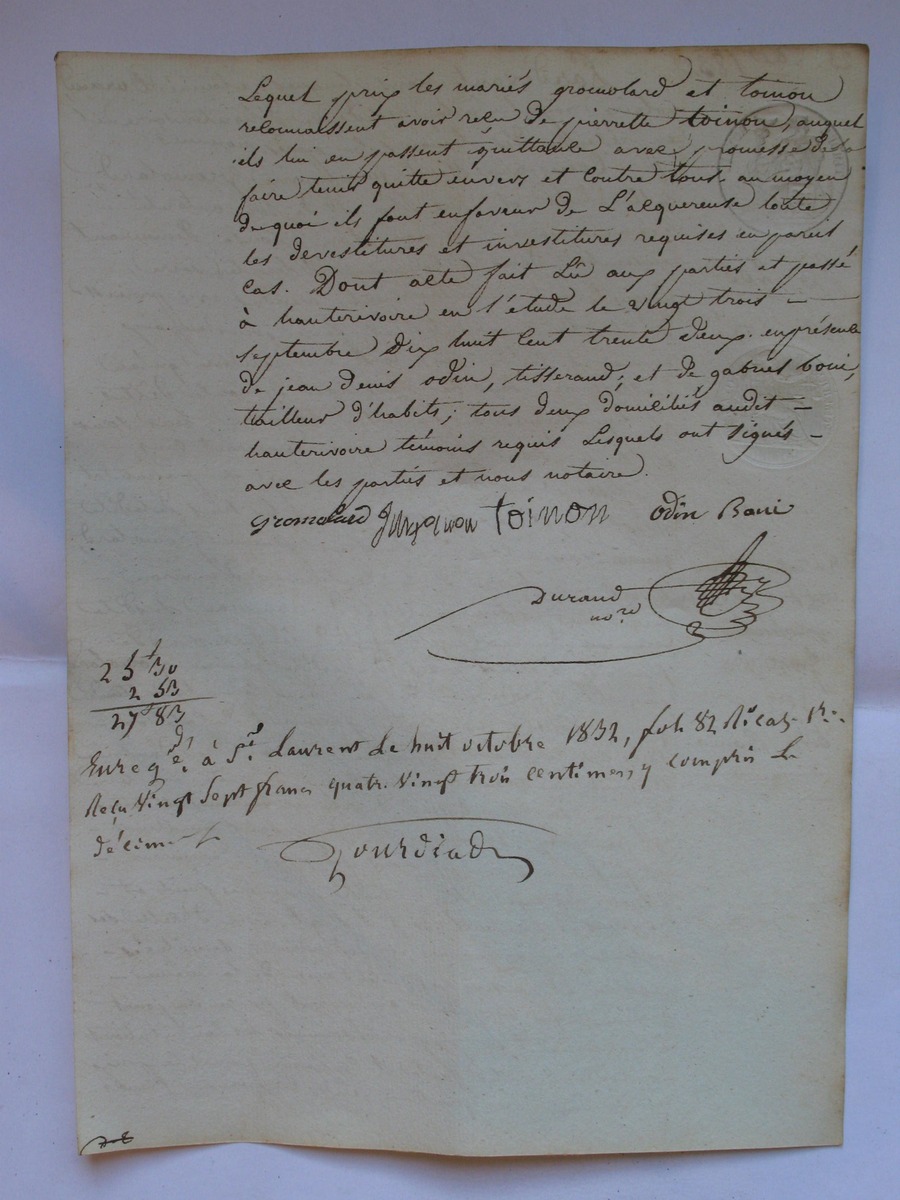 Lequel prix les mariés gromolard et toinon
reconnaissent avoir reçu de pierrette toinon, auquel
ils lui en passent quittance avec promesse de la
faire tenir quitte envers et contre tous. au moyen
de quoi ils font en faveur de L'acquereuse toute
les devestitures et investitures requises en pareil
cas. Dont acte fait Lû aux parties et passé
à hauterivoire en l'étude le vingt trois —
septembre Dix huit cent trente deux. en présence
de jean denis odin, tisserand; et de gabriel boni,
tailleur d'habits; tous deux domiciliés audit —
hauterivoire témoins requis Lesquels ont signés —
avec les parties et nous notaire.
gromolard toinon odin Boni
Durand
no.re
25 f 30
2 53
27 83
Enreg.é à S.t Laurent le huit octobre 1832, fol. 82 R.o Case 1.re
Reçu Vingt Sept francs quatre-vingt trois centimes, y compris le
décime